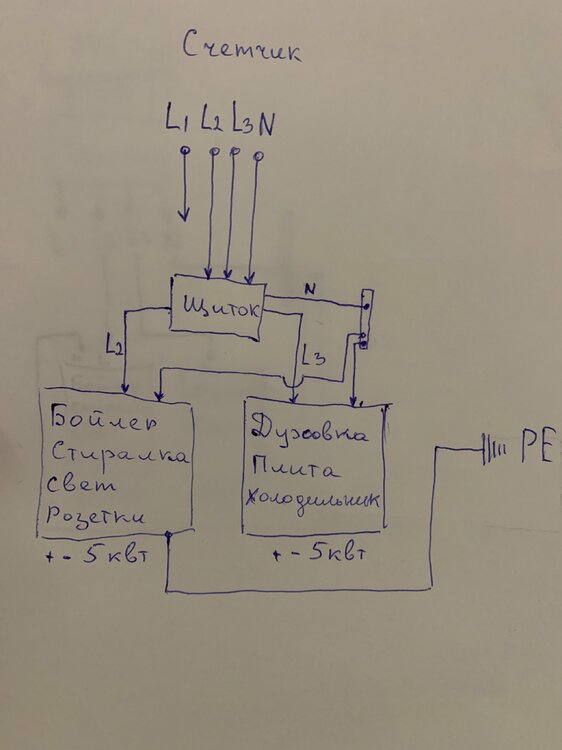 Счетчик
L1 L2 L3 N
Щиток
N
L2
L3
Бойлер
Стиралка
Свет
Розетки
+ - 5 квт
Духовка
Плита
Холодильник
+ - 5 квт
PE